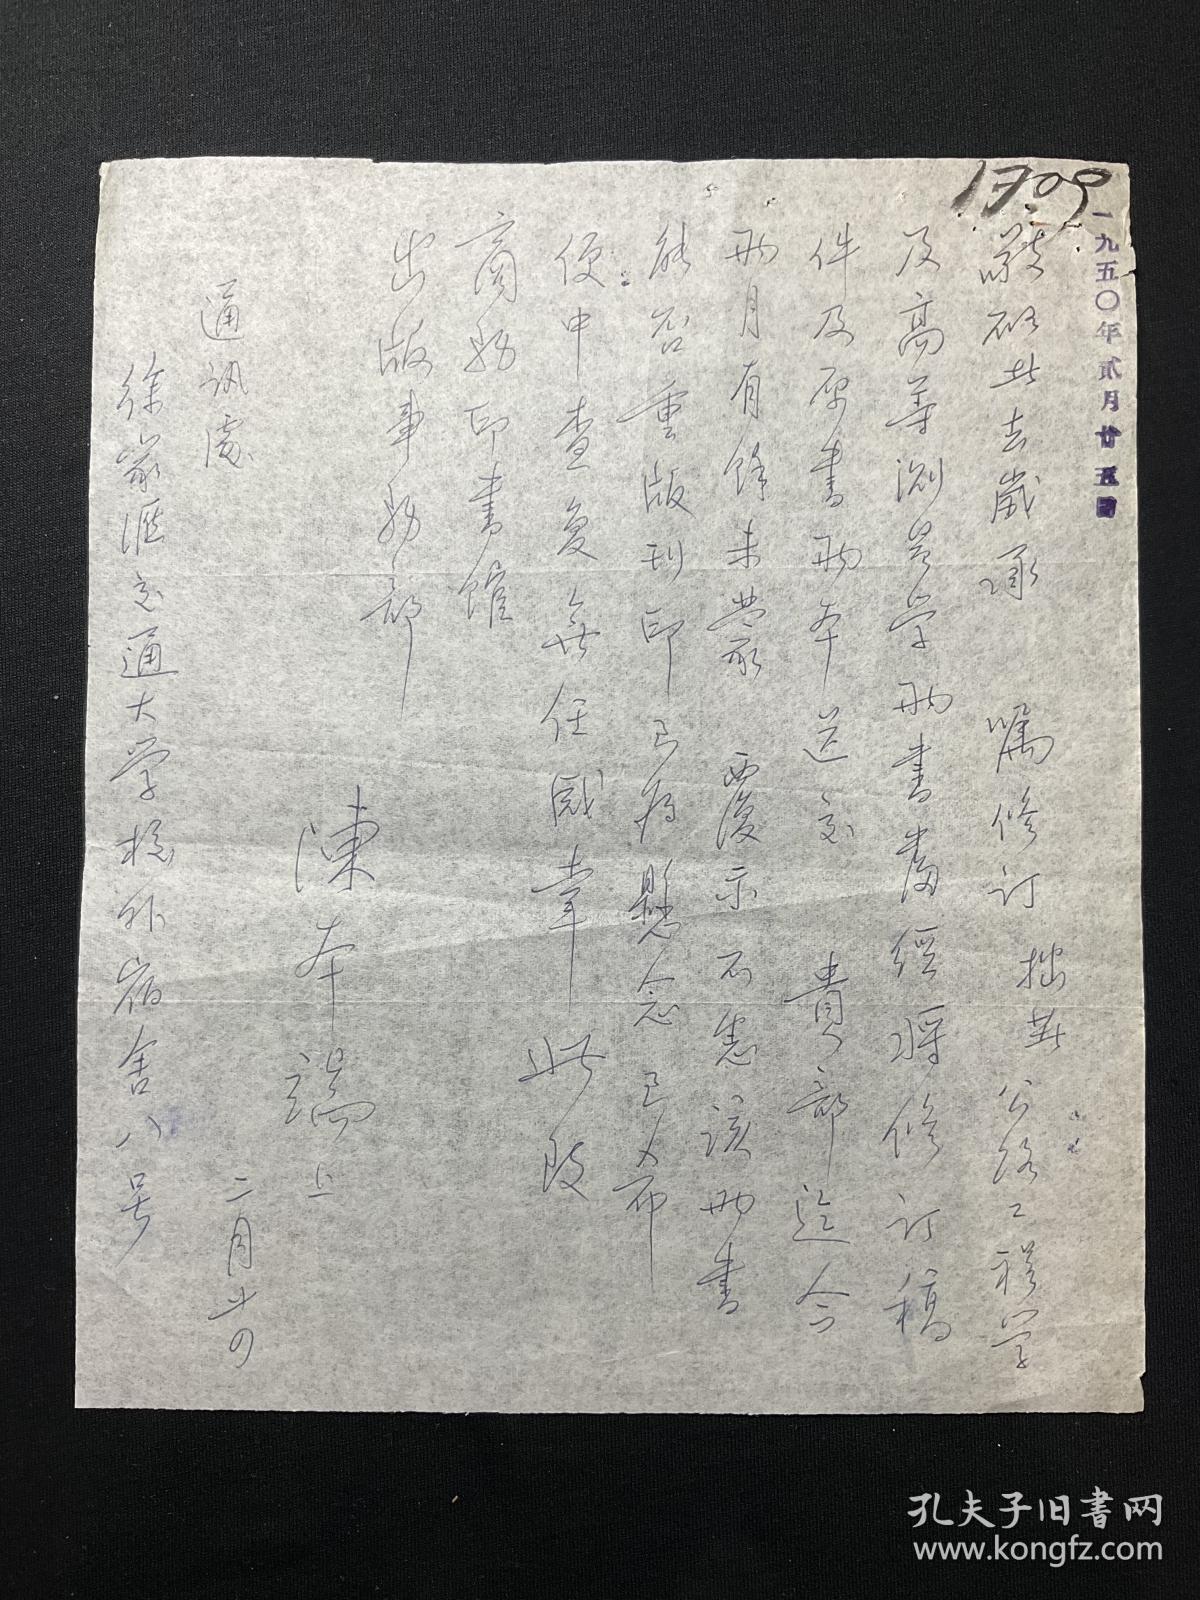 1709
一九五〇年貳月廿五日
敬啟者去歲承 嘱修订 拙著 公路工程学
及高等测量学两書業經将修订稿
件及原書两本送交 貴部迄今
两月有餘未蒙 覆示不悉该两書
能否重版刊印已为懸念 
便中查复無任感幸 此致
商務印書馆
出版事務部
陳本端上
二月廿四
通訊處
徐家滙交通大学校外宿舍八号
孔夫子旧書网
www.kongfz.com